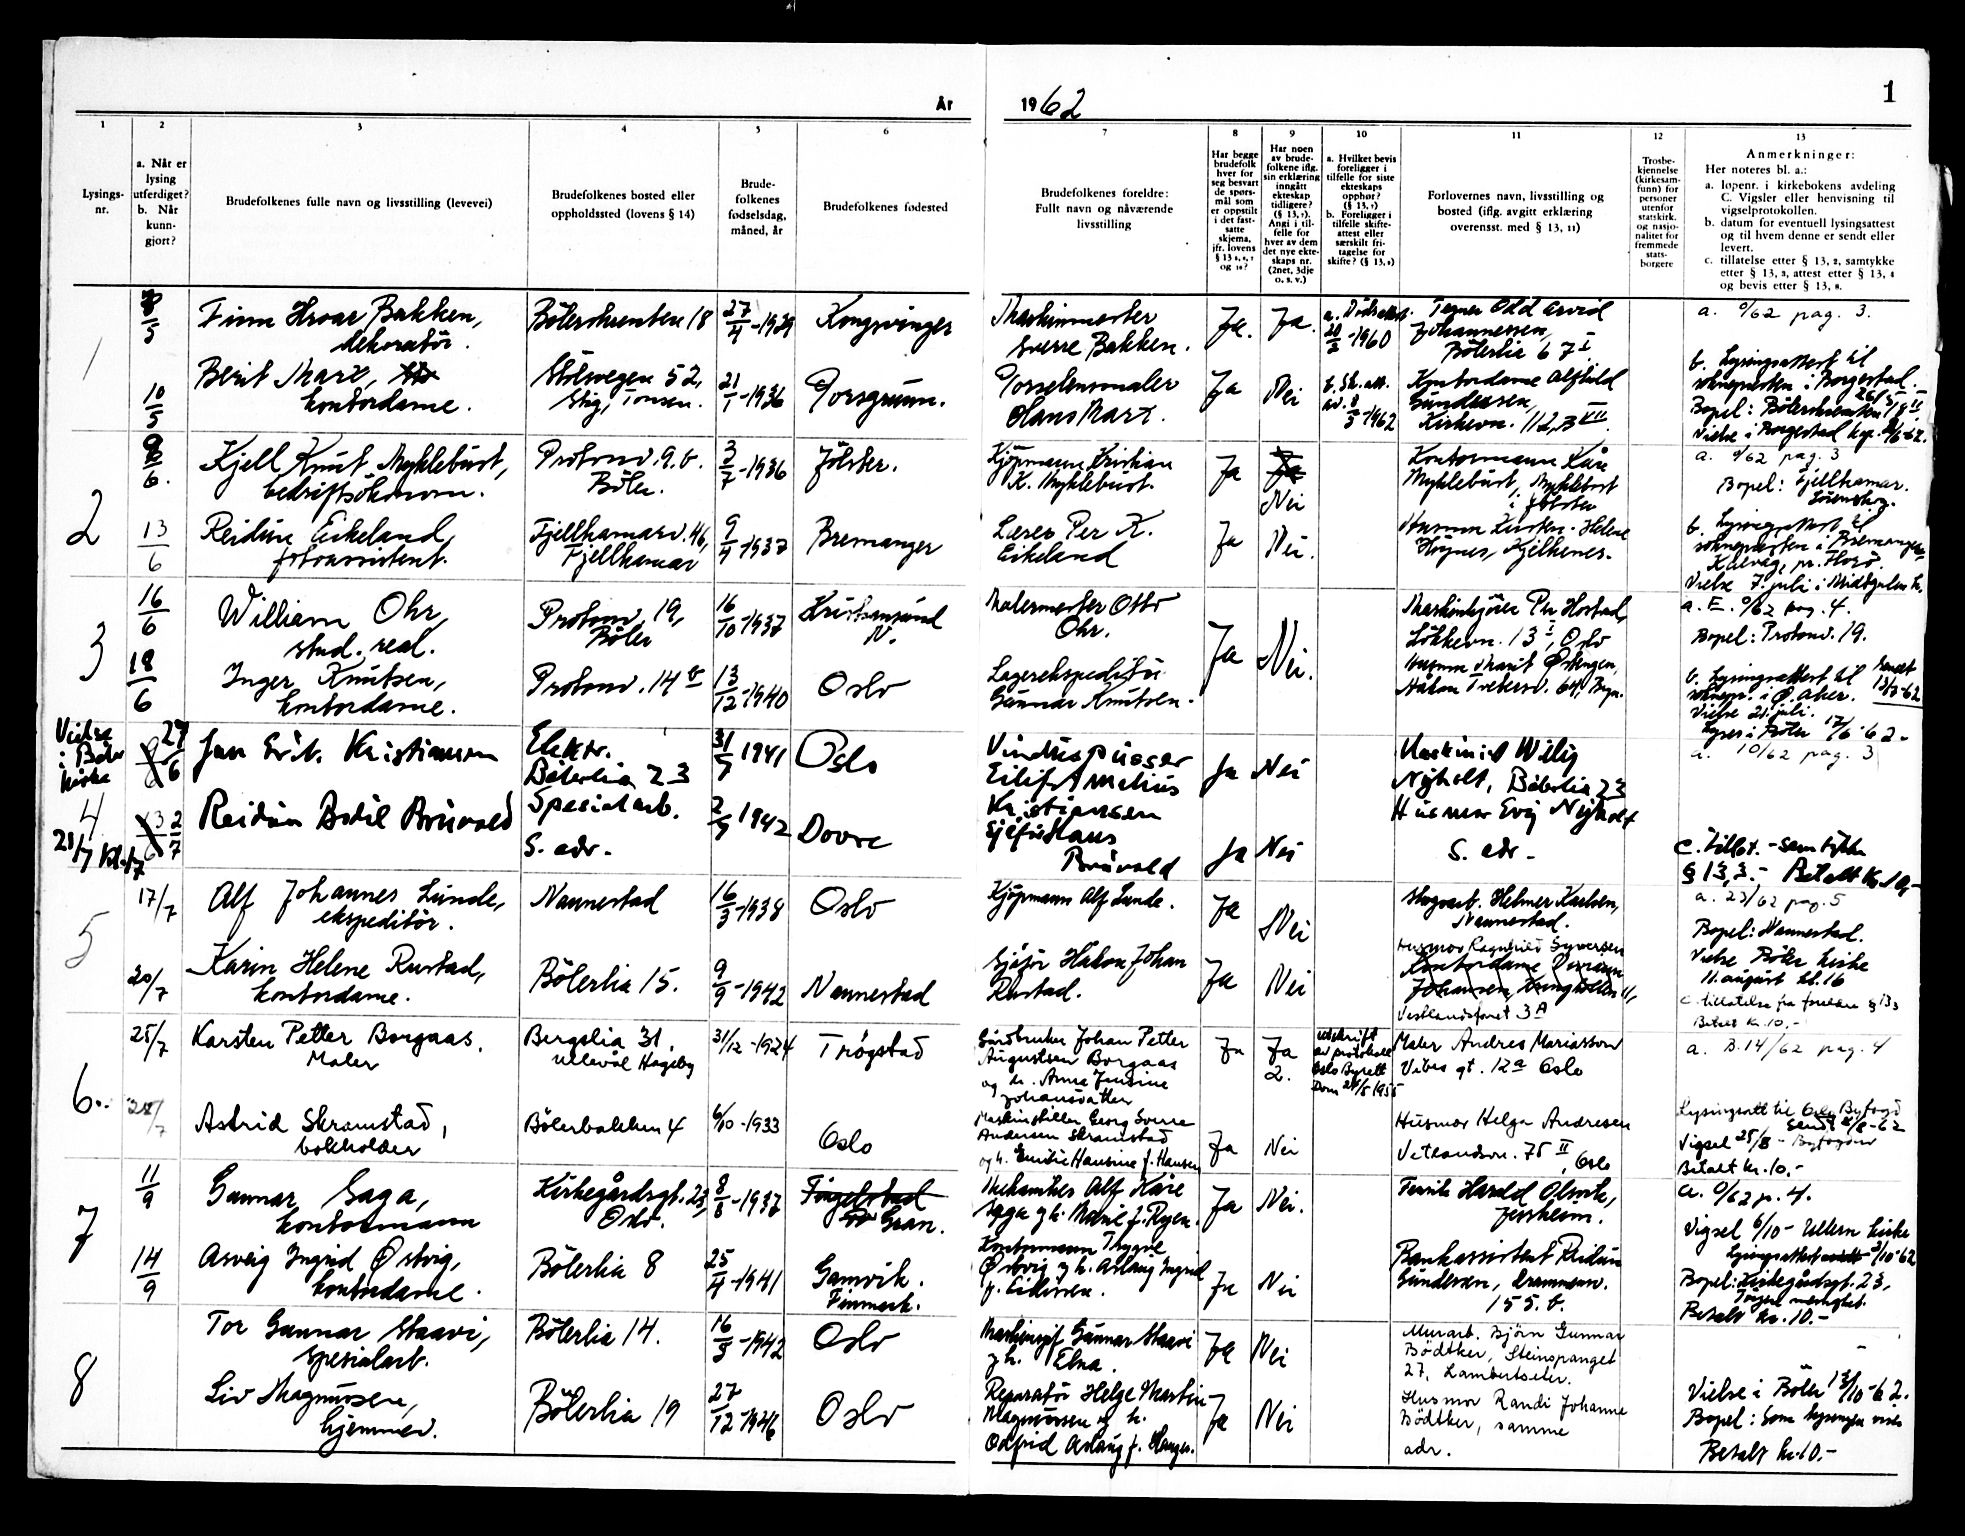 År 1962
1
1 2 3 4 5 6 7 8 9 10 11 12 13
Lysings-
nr.
a. Når er
lysing
utferdiget?
b. Når
kunn-
gjort?
Brudefolkenes fulle navn og livsstilling (levevei)
Brudefolkenes bosted eller
oppholdssted (lovens § 14)
Brude-
folkenes
fødselsdag,
måned, år
Brudefolkenes fødested
Brudefolkenes foreldre:
Fullt navn og nåværende
livsstilling
Har begge
brudefolk
hver for
seg besvart
de spørs-
mål som
er oppstilt
i det fast-
satte
skjema,
jfr. lovens
Har noen
av brude-
folkene iflg.
sin erklæring
inngått
ekteskap
tidligere?
(§ 13, 7).
Angi i til-
felle for
hver av dem
det nye ekte-
skaps nr.
(2net, 3dje
o. s. v.)
a. Hvilket bevis
foreligger i
tilfelle for siste
ekteskaps
opphør?
(§ 13, 7)
b. Foreligger i
tilfelle skifte-
attest eller
særskilt fri-
tagelse for
skifte? (§ 13, 9)
Forlovernes navn, livsstilling og
bosted (iflg. avgitt erklæring
overensst. med § 13, 11)
Trosbe-
kjennelse
(kirkesam-
funn) for
personer
utenfor
statskirk.
og nasjo-
nalitet for
fremmede
stats-
borgere
Anmerkninger:
Her noteres bl. a.:
a. løpenr. i kirkebokens avdeling
C. Vigsler eller henvisning til
vigselprotokollen.
b. datum for eventuell lysingsattest
og til hvem denne er sendt eller
levert.
c. tillatelse etter § 13, 2, samtykke
etter § 13, 3, attest etter § 13, 4
og bevis etter § 13, 8.
1
Finn Hroar Bakken,
dekoratör.
27/4-1929
Kongsvinger
Maskinmester
Sverre Bakken.
Ja. Ja.
1960
Tegner Odd Arvid
Johannessen,
Bölerlia 67 I
a. 0/62 pag. 3.
10/5
Berit Marx,
kontordame.
52,
21/1-1936
Porsgrunn.
Porselensmaler
Hans Marx.
Ja Nei
1962
Kontordame Alfhild
Gundersen,
Kirkevn. 112,
b. Lysingsattest til
soknepresten i Borgestad.
2
Kjell Knut Myklebust,
bedriftsökonom.
Protonv. 9. b.
Böler.
3/7-1936
Jölster.
Kjöpmann Kristian
K. Myklebust.
Ja Nei
Kontormann Kåre
Myklebust, Myklebust
i Jölster
a. 0/62 pag. 3
Bopel: Fjellhamar.
13/6
Reidun Eikeland,
Fjellhamarv. 46,
Fjellhamar
9/4-1937
Bremanger
Lærer Per K.
Eikeland
Ja Nei.
b. Lysingsattest til
soknepresten i Bremanger
Vielse 7. juli i
3
16/6
William Ohr,
stud. real.
Protonv. 19,
Böler
16/10-1937
Kristiansund
N.
Malermester Otto
Ohr.
Ja Nei.
a. E. 0/62 pag. 4.
Bopel: Protonv. 19.
18/6
Inger Knutsen,
kontordame.
Protonv. 14 b
13/12-1940
Oslo
Lagerekspeditör
Gunnar Knutsen.
b. Lysingsattest til
soknepr. i Ö. Aker.
Vielse 21. juli.
Vielse
i Böler
kirke
4
27/6
Jan Erik Kristiansen
Elektr.
Bölerlia 23
31/7 1941
Oslo
Vinduspusser
Eilif Amelius
Kristiansen
Ja Nei
Maskinist Willy
Nyholt, Bölerlia 23
Husmor Evy Nyholt
a. 10/62 pag. 3
2/7
Reidun Bodil Bruvold
Spesialarb.
S. adr.
1942
Dovre
Sjåför Hans
Bruvold
Ja Nei
S. adr.
c. tillat. - samtykke
§ 13,3. - Betalt Kr. 10,-
5
17/7
Alf Johannes Lunde,
ekspeditör.
Nannestad
16/3-1938
Oslo
Kjöpmann Alf Lunde.
Ja Nei
Skogsarb. Helmer Karlsen,
Nannestad.
a. 23/62 pag. 5
Bopel: Nannestad.
20/7
Karin Helene Rustad,
kontordame.
Bölerlia 15.
9/9-1942
Nannestad
Sjåför Håkon Johan
Rustad.
Ja Nei
Husmor Ragnhild Syversen
Vestlandsfaret 3A
Vielse Böler kirke
11. august kl. 16
c. tillatelse fra foreldre § 13 3
Betalt kr. 10.-
6.
25/7
Karsten Petter Borgaas.
Maler
Bergslia 31.
Ullevål Hageby
31/12-1924
Trögstad
Gårdbruker Johan Petter
Augustsen Borgaas
og h. Anna Jensine
Johansdatter
Ja Ja
2.
utskrift
av protokoll
Oslo Byrett
Maler Andres Mariasson
Vibes gt. 12a Oslo
a. B.14/62 pag. 4
Astrid Skramstad,
bokholder
Bölerbakken 4
6/10-1933
Oslo
Maskinstiller Georg Sverre
Andersen Skramstad
og h. Emilie Hansine f. Hansen
Ja Nei
Husmor Helga Andresen
Vetlandsvn. 75 II, Oslo
Lysingsatt til Oslo Byfogd
Vigsel 25/8 - Byfogden
Betalt kr. 10.-
7
11/9
Gunnar Gaga,
kontormann
Kirkegårdsgt. 23,
Oslo.
8/8-1937
Gran.
Mekaniker Alf Kåre
Saga g.h. Marie f. Ryen.
Ja Nei.
Harald
Jessheim.
a. 0/62 p. 4.
Vigsel 6/10 - Ullern kirke
14/9
Asveig Ingrid Østvig,
kontordame.
Bölerlia 8
25/4-1941
Gamvik.
Finnmark.
Kontormann Trygve
Østvig og h. Aslaug Ingrid
f. Eidissen.
Ja Nei
Bankassistent Reidun
Gundersen, Drammensv.
155. b.
Bopel: Kirkegårdsgt. 23,
Betalt kr. 10.-
8
Tor Gunnar Staavi,
spesialarb.
Bölerlia 14.
16/3-1942
Oslo
Maskinsjef Gunnar Staavi
g.h. Edna.
Ja Nei
Murarb. Björn Gunnar
Bödtker, Steinspanget
27, Lambertseter.
Liv Magnussen,
hjemmev.
Bölerlia 19
27/12-1946
Oslo
Reparatör Helge Martin
Magnussen og h.
Odfrid Aslaug f. Hanger.
Ja Nei
Husmor Randi Johanne
Bödtker, samme
adr.
Vielse i Böler 13/10-62.
Bopel: Som lysingen viser
Betalt kr. 10.-